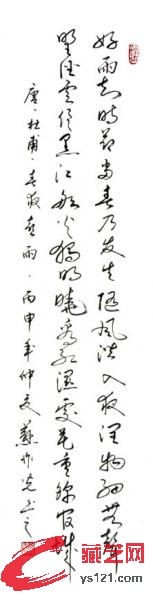 好雨知时节当春乃发生随风潜入夜润物细无聲
野径云俱黑江船火独明晓看红湿处花重锦官城
唐·杜甫·春夜喜雨·丙申年仲夏蘇作光书之
ys121.com